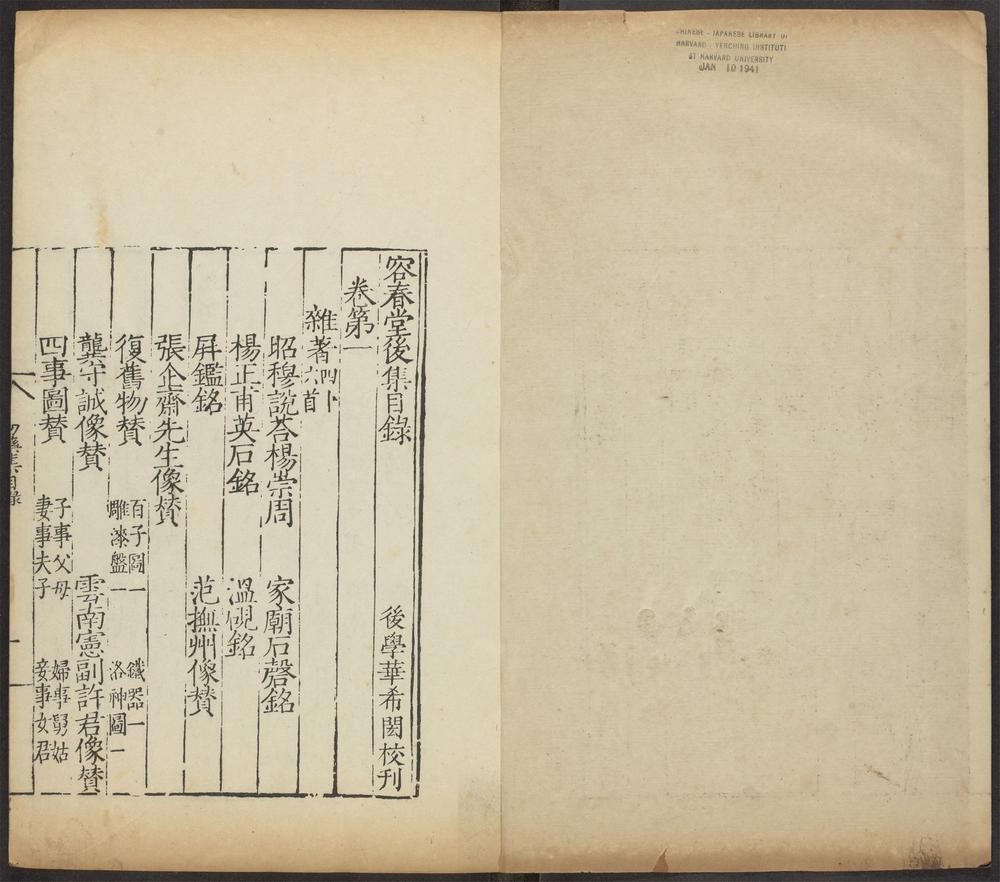 CHINESE - JAPANESE LIBRARY OF
HARVARD YENCHING INSTITUTE
AT HARVARD UNIVERSITY
JAN 10 1941
容春堂後集目錄
後學華希閎校刊
卷第一
雜著四十六首
昭穆說荅楊崇周 家廟石磬銘
楊正甫英石銘 溫硯銘
屛鑑銘 范撫州像賛
張企齋先生像賛
復舊物賛 百子圖一 雕漆盤一 鐵器一 洛神圖一
龔守誠像賛 雲南憲副許君像賛
四事圖賛 子事父母 妻事夫子 婦事舅姑 妾事女君